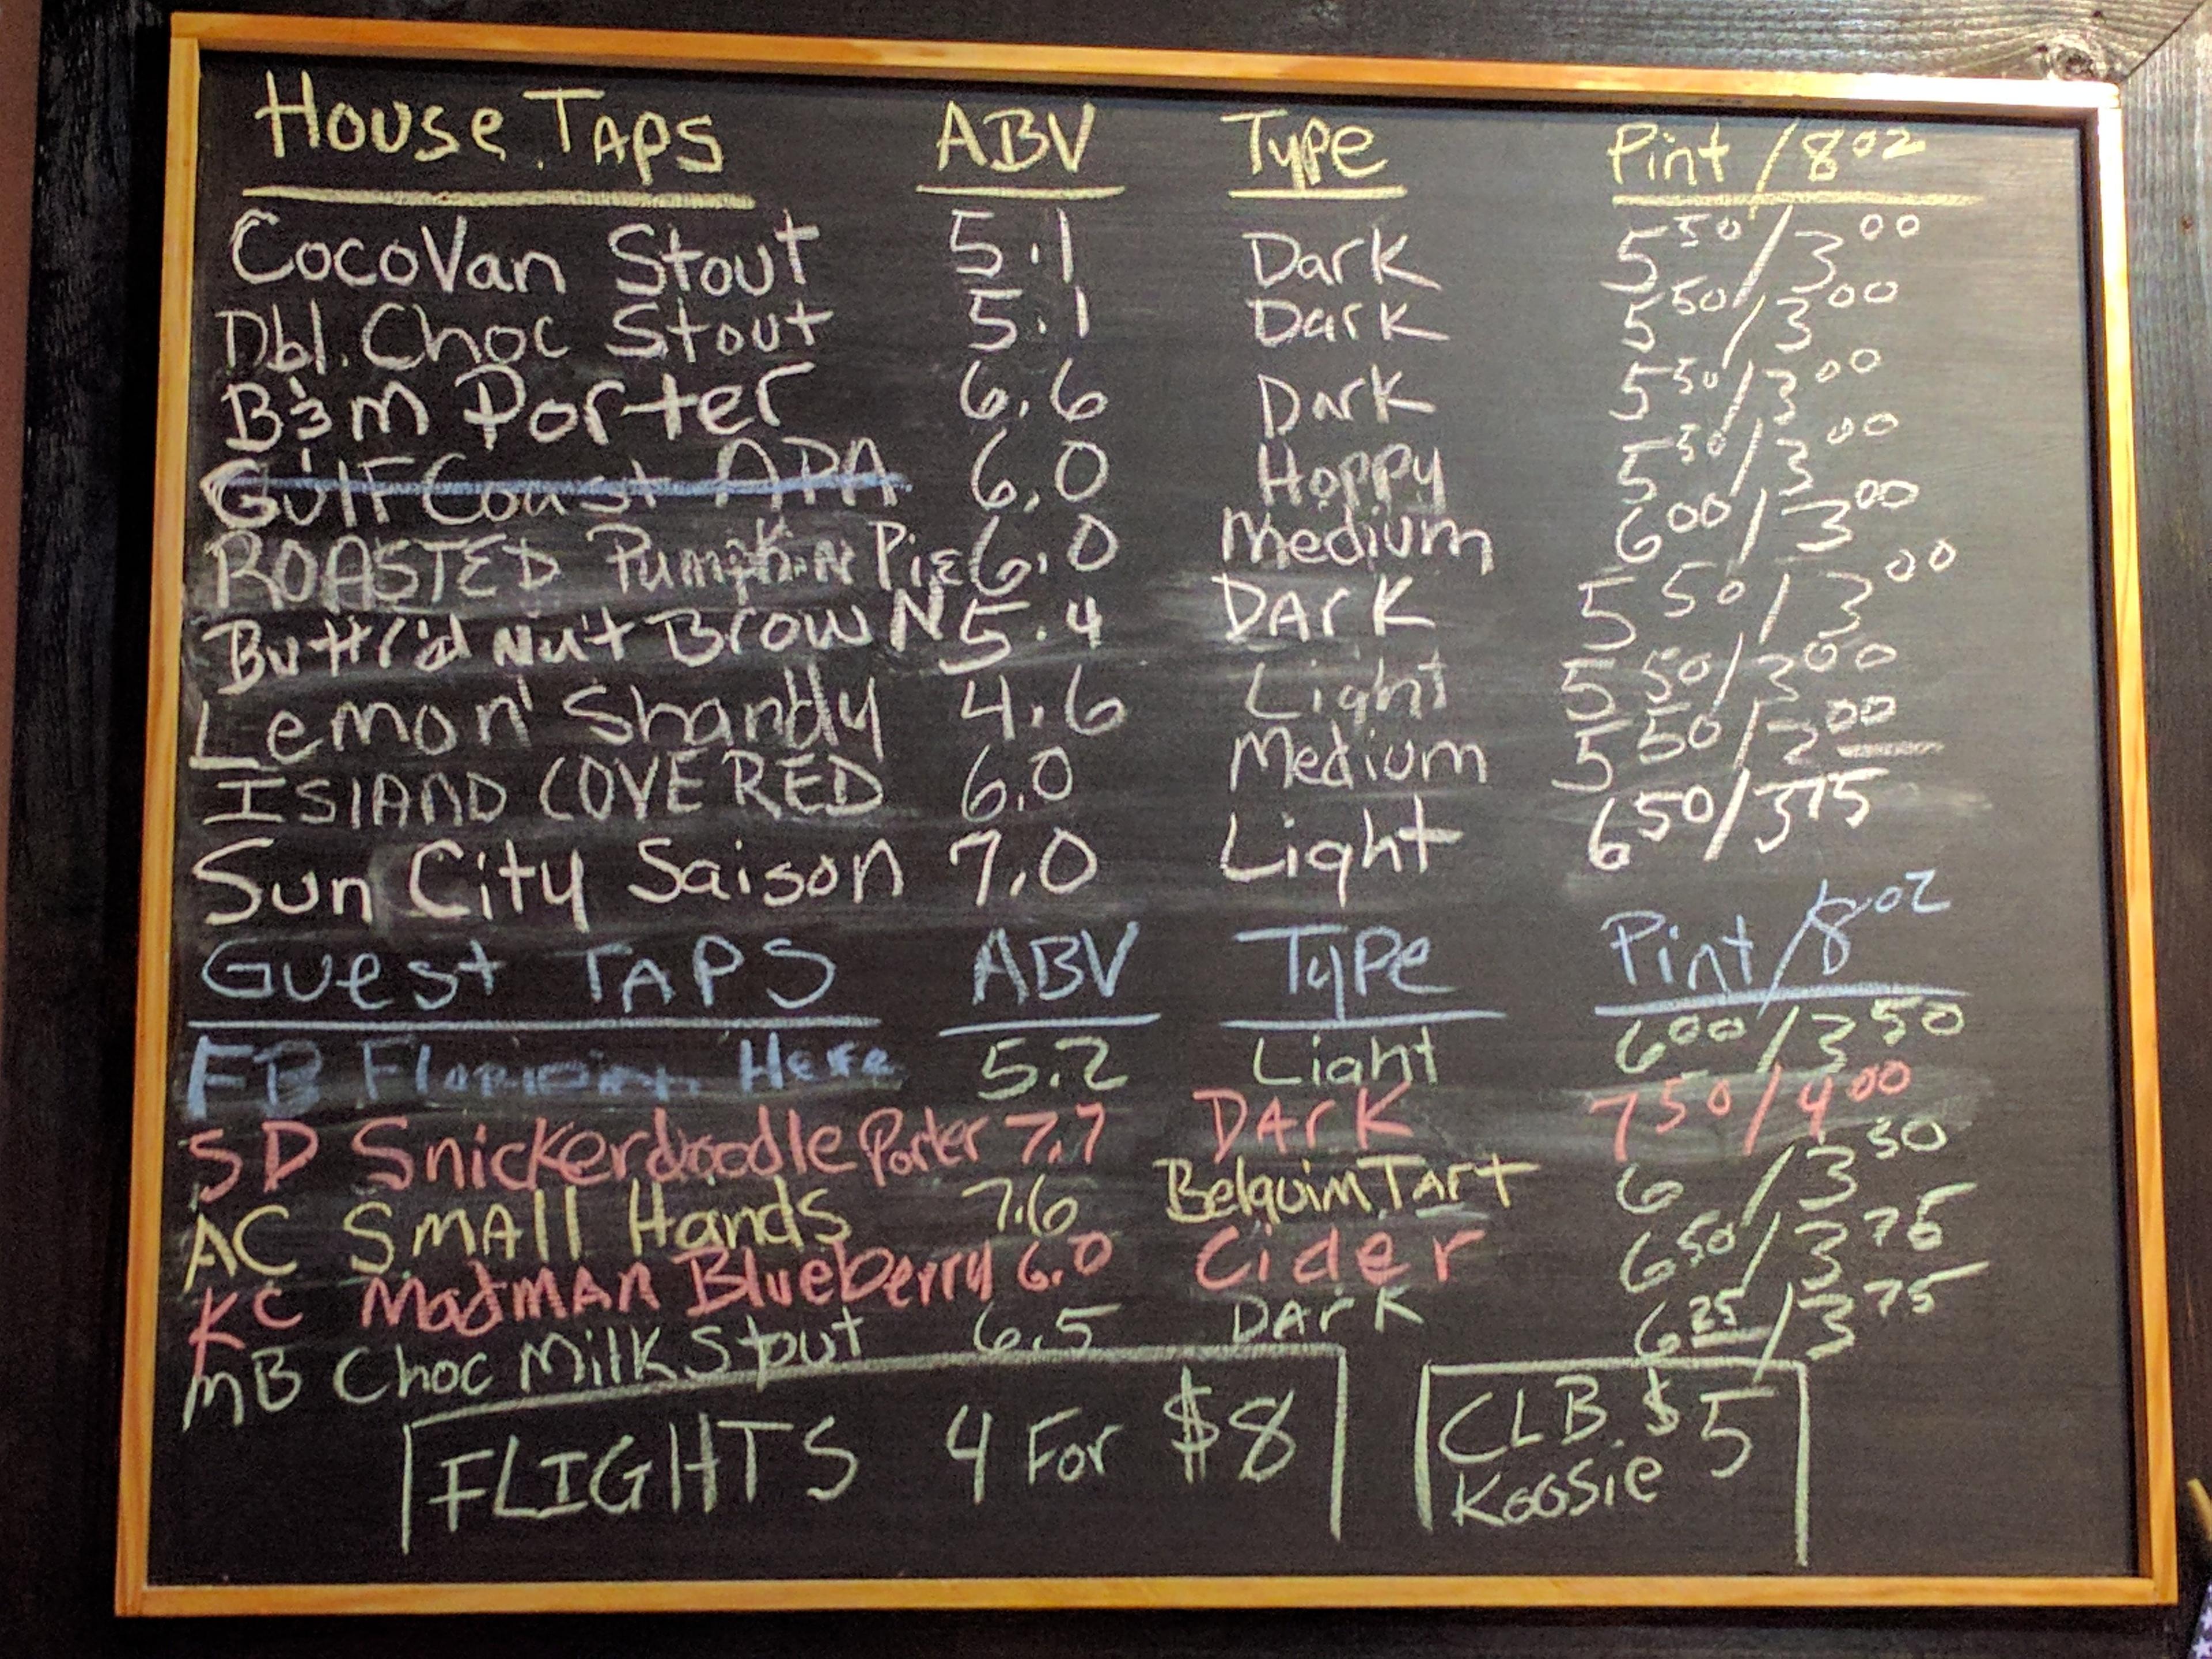 House Taps ABV Type Pint / 8oz
CocoVan Stout 5.1 Dark 5 50 / 3 00
Dbl. Choc Stout 5.1 Dark 5 50 / 3 00
B&M Porter 6.6 Dark 5 50 / 3 00
Gulf Coast APA 6.0 Hoppy 5 50 / 3 00
ROASTED Pumpkin Pie 6.0 Medium 6 00 / 3 00
Butt'r'd Nut Brown 5.4 Dark 5 50 / 3 00
Lemon Shandy 4.6 Light 5 50 / 3 00
ISLAND COVE RED 6.0 Medium 5 50 / 2 00
Sun City Saison 7.0 Light 6 50 / 3 75
Guest TAPS ABV Type Pint / 8oz
FB 5.2 Light 6 00 / 3 50
SD Snickerdoodle Porter 7.7 DArK 7 50 / 4 00
AC SMAll Hands 7.6 Belquim TArt 6 / 3 50
KC MadMAN Blueberry 6.0 Cider 6 50 / 3 75
MB Choc Milk Stout 6.5 DArK 6 25 / 3 75
FLIGHTS 4 For $8
CLB $5
Koosie